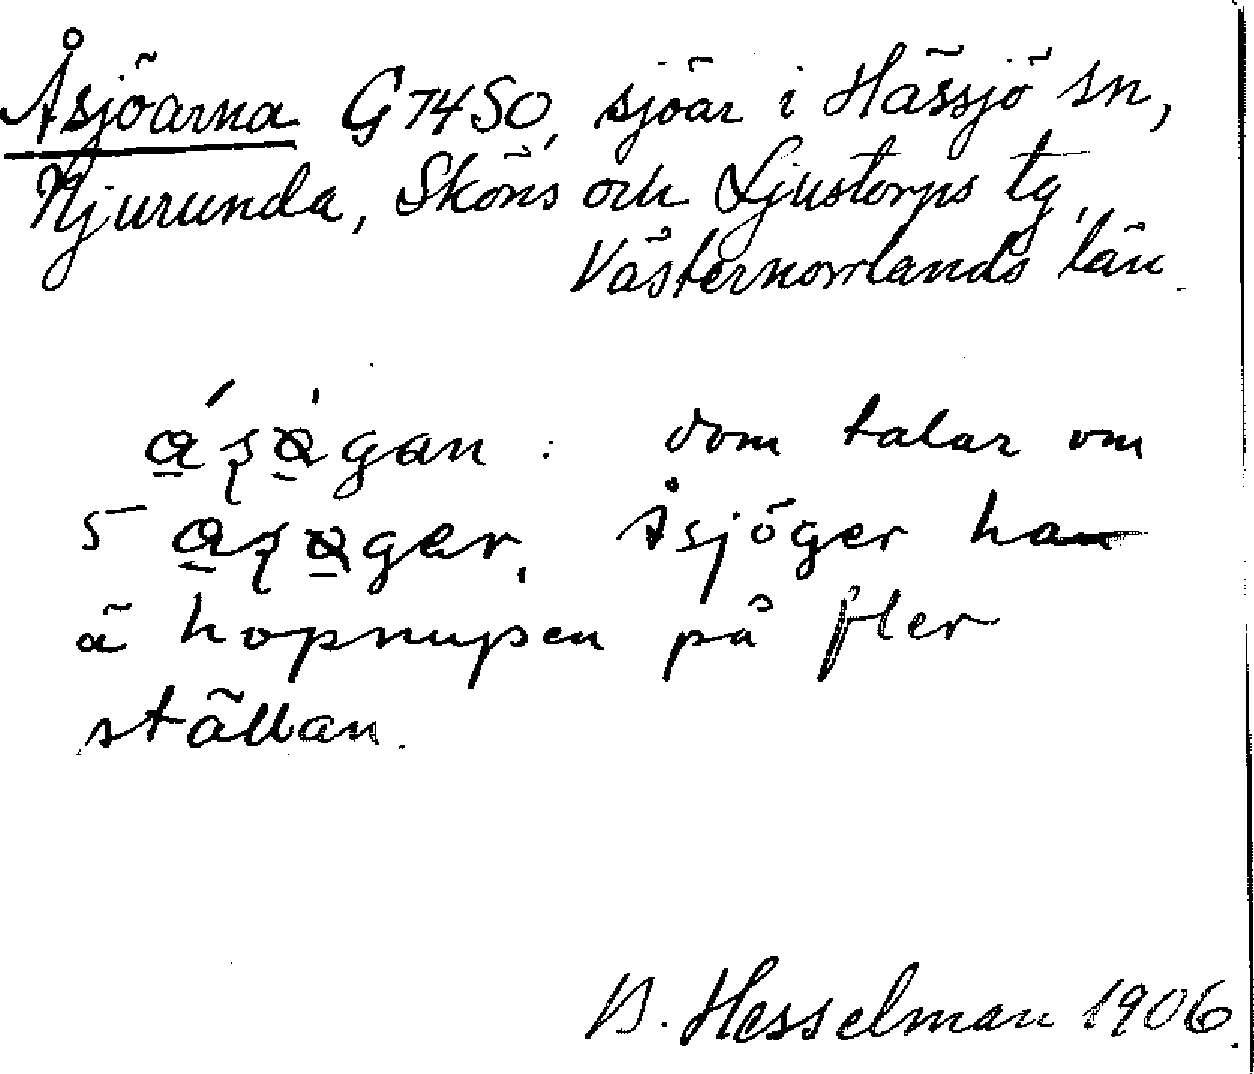 Åsjöarna G74SO, sjöar i Hässjö sn,
Njurunda, Sköns och Ljustorps tg,
Västernorrlands län.
dom talar om
5 Åsjöger ha
ä hopnupen på fler
ställan.
B. Hesselman 1906.